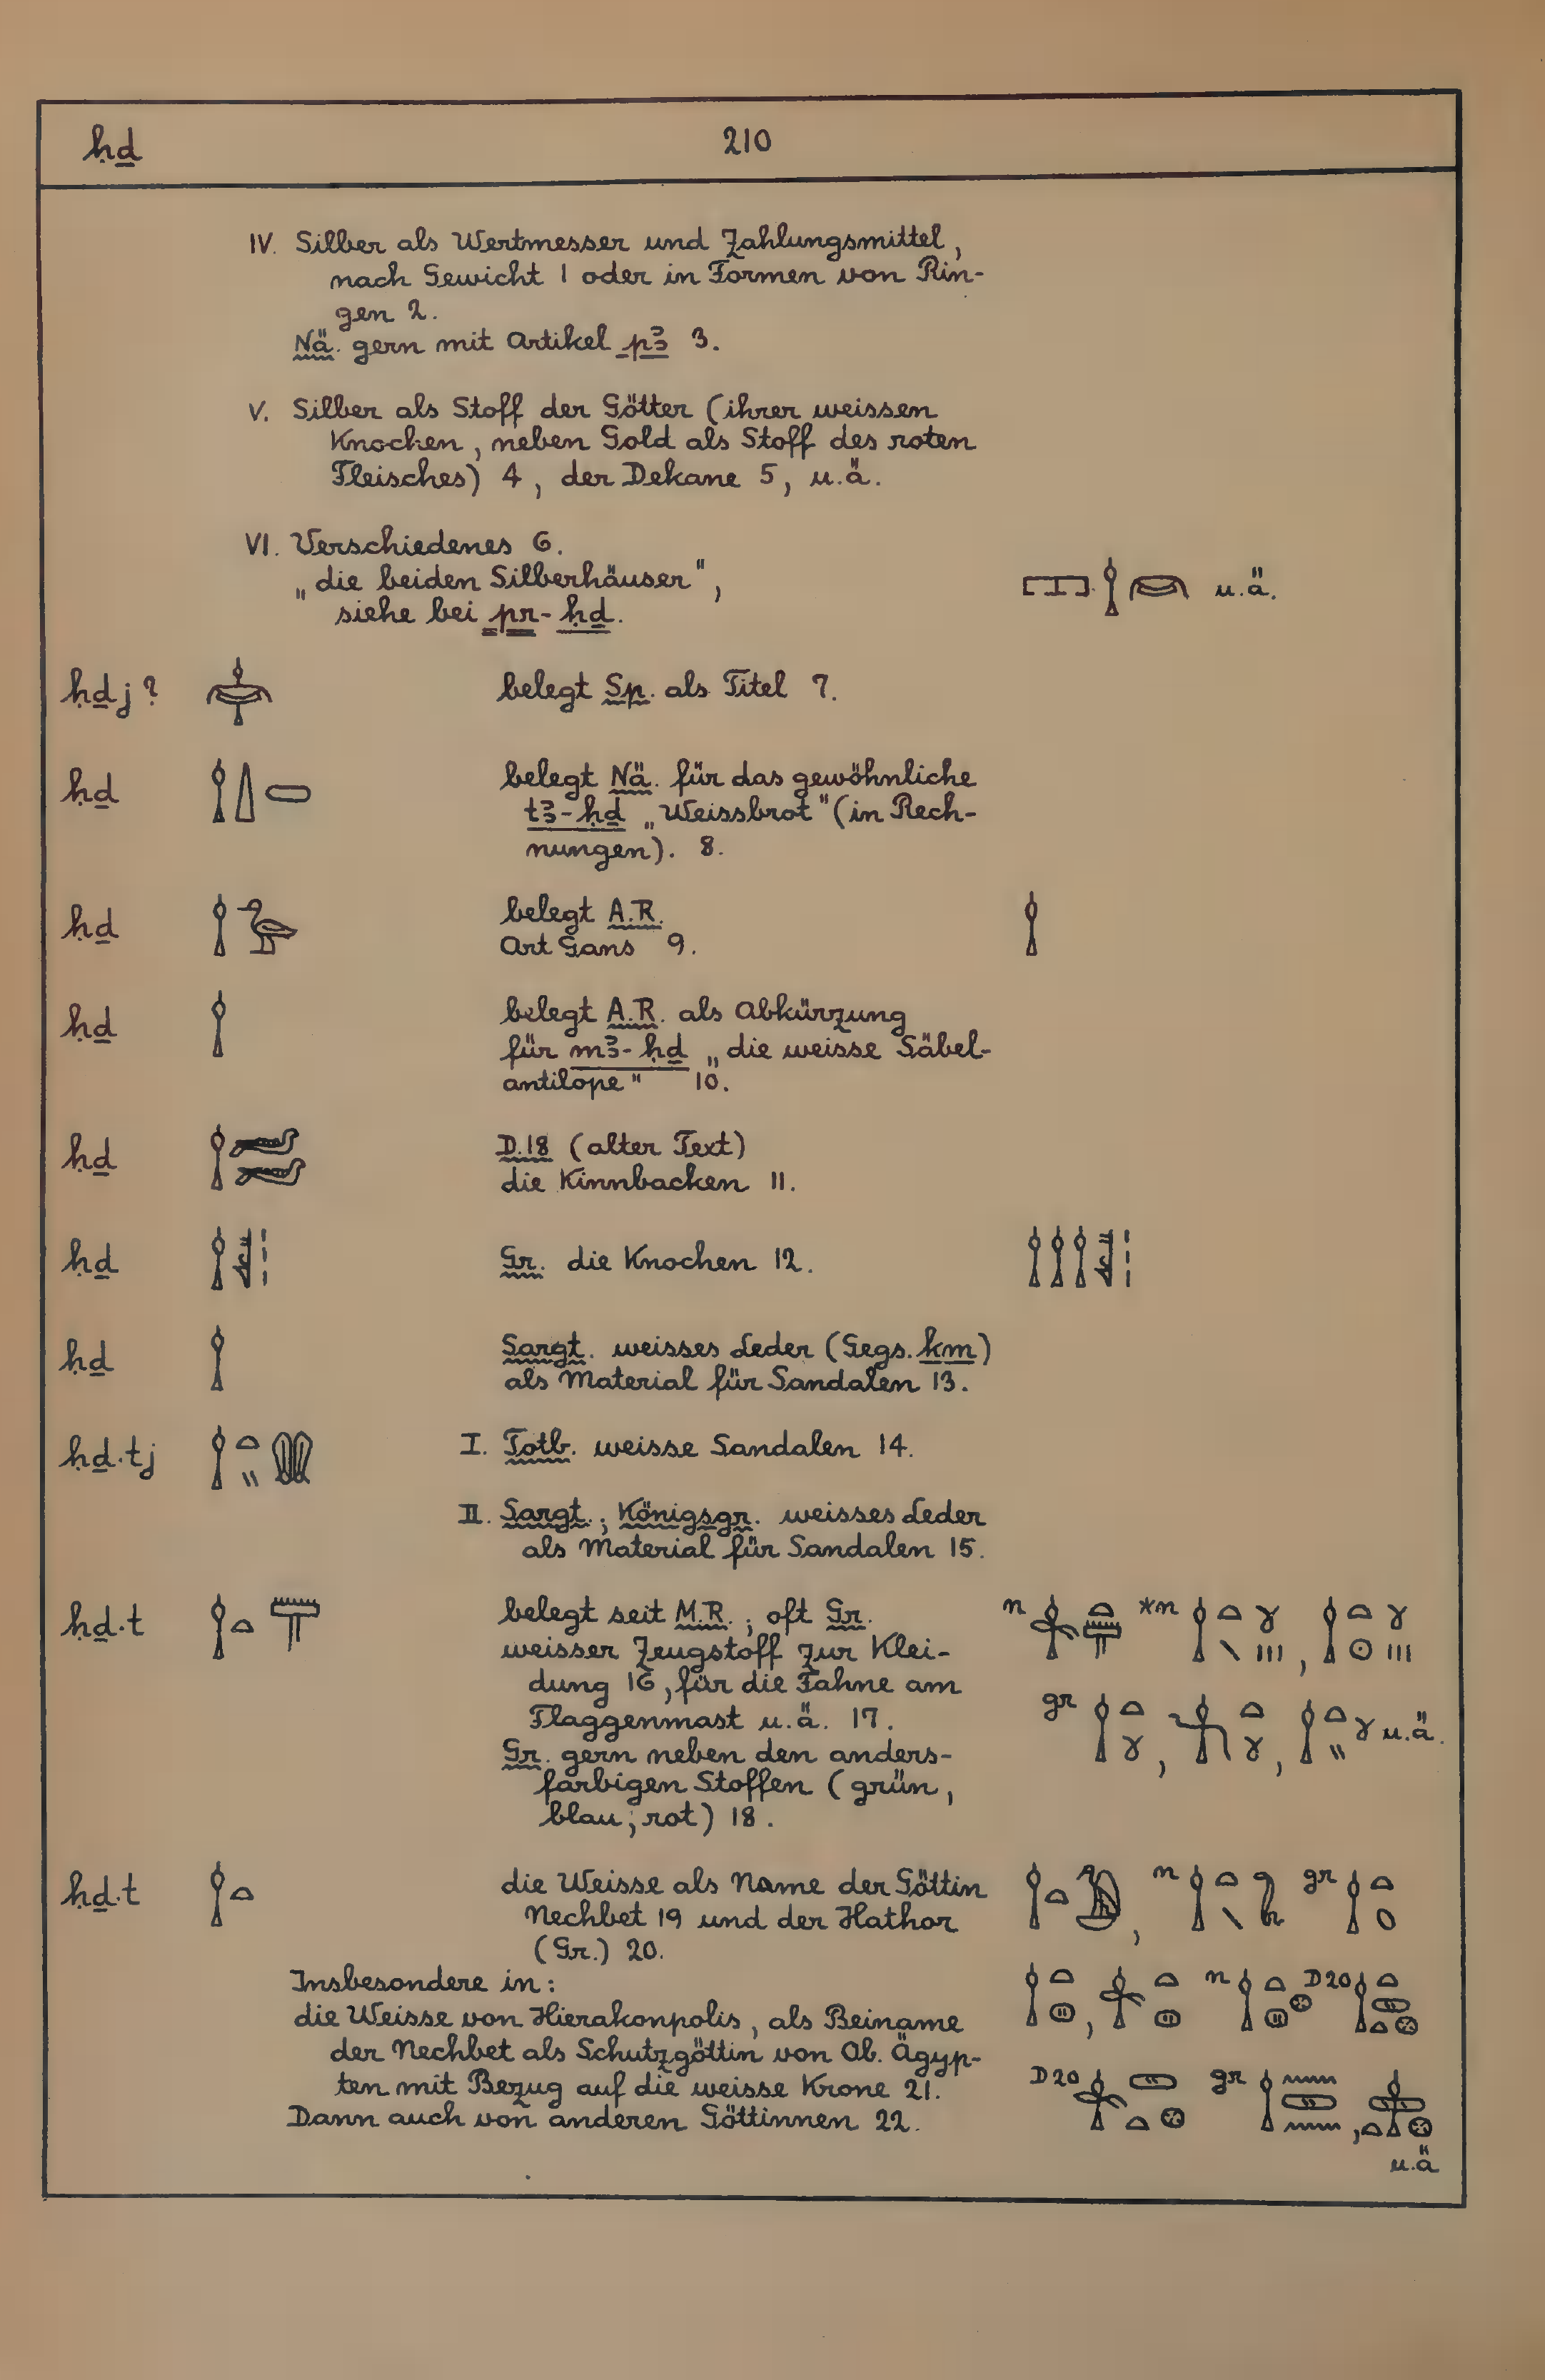 ḥḏ 210
IV. Silber als Wertmesser und Zahlungsmittel,
nach Gewicht 1 oder in Formen von Rin-
gen 2.
Nä. gern mit Artikel pꜣ 3.
V. Silber als Stoff der Götter (ihrer weissen
Knochen, neben Gold als Stoff des roten
Fleisches) 4, der Dekane 5, u.ä.
VI. Verschiedenes 6.
„die beiden Silberhäuser", u.ä.
siehe bei pr-ḥḏ.
ḥḏj? belegt Sp. als Titel 7.
ḥḏ belegt Nä. für das gewöhnliche
tꜣ-ḥḏ „Weissbrot" (in Rech-
nungen). 8.
ḥḏ belegt A.R.
Art Gans 9.
ḥḏ belegt A.R. als Abkürzung
für mꜣ-ḥḏ „die weisse Säbel-
antilope" 10.
ḥḏ D.18 (alter Text)
die Kinnbacken 11.
ḥḏ Gr. die Knochen 12.
ḥḏ Sargt. weisses Leder (Gegs. km)
als Material für Sandalen 13.
ḥḏ.tj I. Totb. weisse Sandalen 14.
II. Sargt.; Königsgr. weisses Leder
als Material für Sandalen 15.
ḥḏ.t belegt seit M.R.; oft Gr. n *n ,
weisser Zeugstoff zur Klei-
dung 16, für die Fahne am
Flaggenmast u.ä. 17. gr , , u.ä.
Gr. gern neben den anders-
farbigen Stoffen (grün,
blau; rot) 18.
ḥḏ.t die Weisse als Name der Göttin , n gr
Nechbet 19 und der Hathor
(Gr.) 20.
Insbesondere in: , n D20
die Weisse von Hierakonpolis, als Beiname
der Nechbet als Schutzgöttin von Ob. Ägyp-
ten mit Bezug auf die weisse Krone 21. D20 gr ,
Dann auch von anderen Göttinnen 22.
u.ä